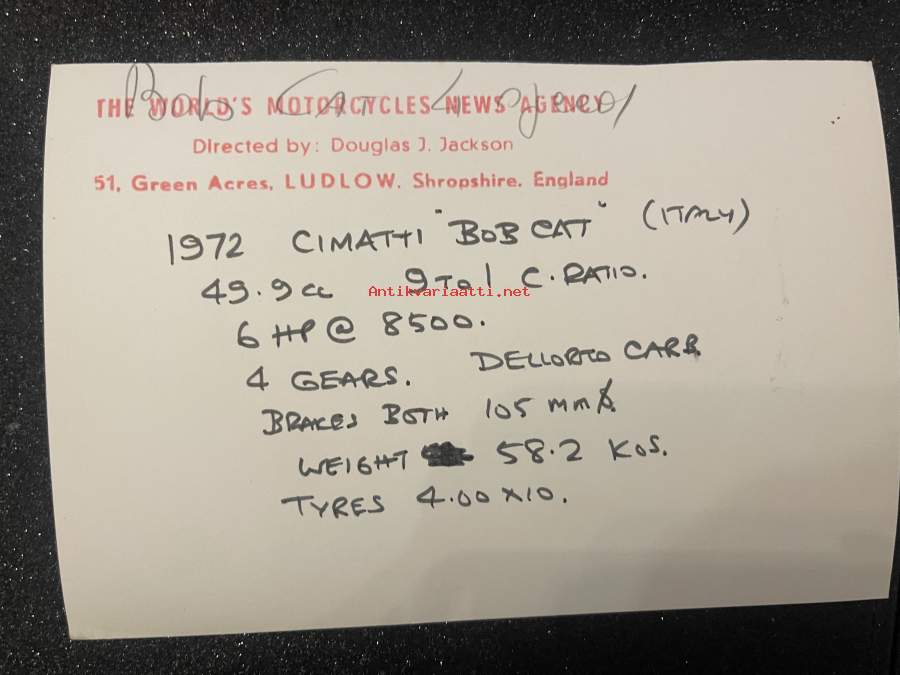 Bob Cat 4 speed
THE WORLD'S MOTORCYCLES NEWS AGENCY
Directed by: Douglas J. Jackson
51, Green Acres, LUDLOW, Shropshire, England
1972 CIMATTI "BOB CAT" (ITALY)
49.9 cc 9 TO 1 C. RATIO.
Antikvariaatti.net
6 HP @ 8500.
4 GEARS. DELLORTO CARB.
BRAKES BOTH 105 mm
WEIGHT 58.2 KGS.
TYRES 4.00 X 10.